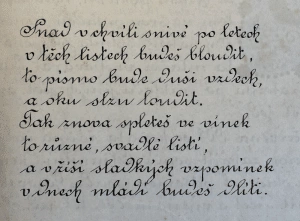 Snad v chvíli snivé po letech
v těch listech budeš bloudit,
to písmo bude duši vzdech,
a oku slzu loudit.
Tak znova spleteš ve vínek
to různé, svadlé listí,
a v říši sladkých vzpomínek
v dnech mládí budeš dlíti.